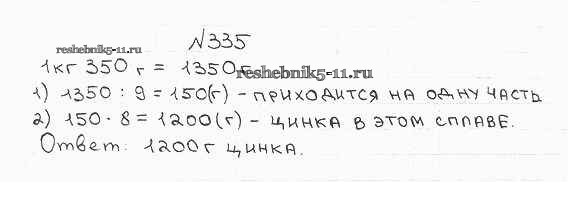 №335
reshebnik5-11.ru
1кг 350 г = 1350г
reshebnik5-11.ru
1) 1350 : 9 = 150(г) - ПРИХОДИТСЯ НА ОДНУ ЧАСТЬ
2) 150 · 8 = 1200(г) - ЦИНКА В ЭТОМ СПЛАВЕ.
Ответ: 1200г ЦИНКА.